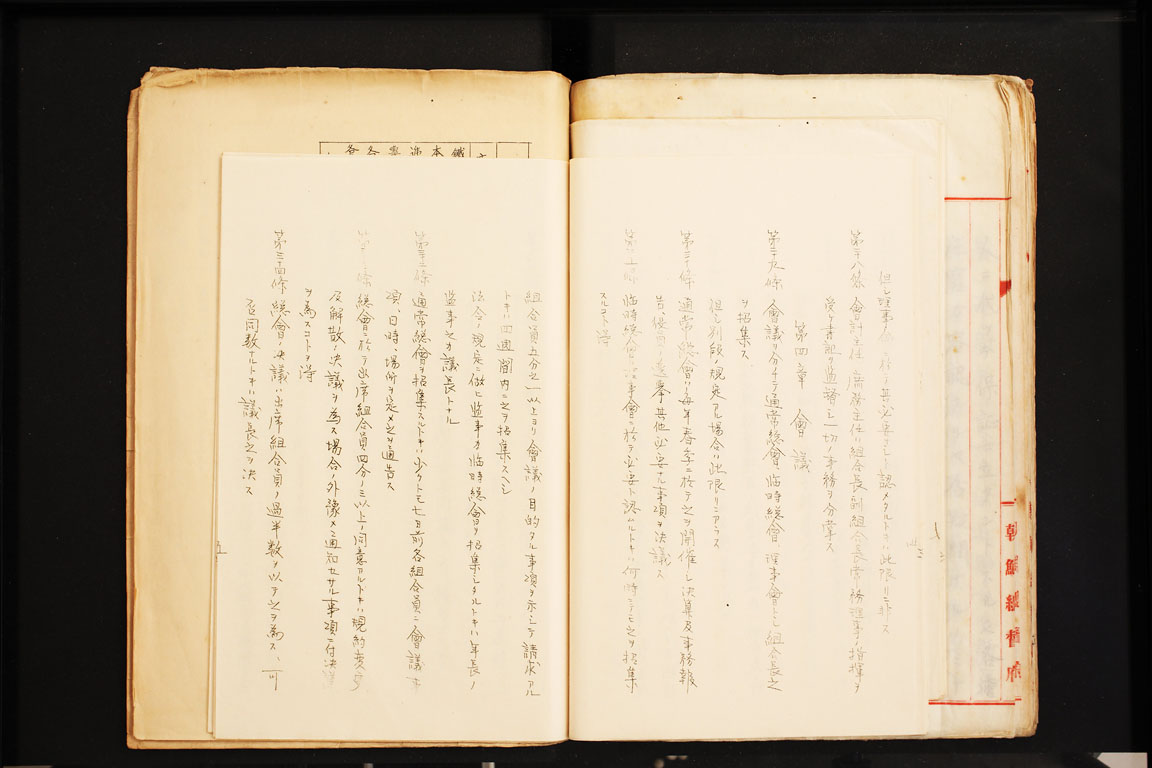 但シ理事会ニ於テ其必要ナシト認メタルトキハ此限リニ非ス
第二十八條 會計主任、庶務主任ハ組合長、副組合長、常務理事ノ指揮ヲ
受ケ書記ヲ監督シ一切ノ事務ヲ分掌ス
第四章 會議
第二十九條 會議ヲ分チテ通常総會、臨時総會、理事會トシ組合長之
ヲ招集ス
但シ別段ノ規定アル場合ハ此限リニアラス
第三十條 通常総會ハ毎年春季ニ於テ之ヲ開催シ決算及事務報
告、役員ノ選挙其他必要ナル事項ヲ決議ス
臨時総會ハ理事會ニ於テ必要ト認ムルトキハ何時ニテモ之ヲ招集
スルコトヲ得
組合員五分之一以上ヨリ會議ノ目的タル事項ヲ示シテ請求アル
トキハ四週間内ニ之ヲ招集スヘシ
法令ノ規定ニ做ヒ監事カ臨時総會ヲ招集シタルトキハ年長ノ
監事之カ議長トナル
通常総會ヲ招集スルトキハ少クトモ七日前各組合員ニ會議事
項、日時、場所ヲ定メ之ヲ通告ス
総會ニ於テ出席組合員四分ノ三以上ノ同意アルトキハ規約変更
及解散ノ決議ヲ為ス場合ノ外豫メ通知セサル事項ニ付決議
ヲ為スコトヲ得
第三十四條 総會ノ決議ハ出席組合員ノ過半数ヲ以テ之ヲ為ス、可
否同数ナルトキハ議長之ヲ決ス
朝鮮総督府